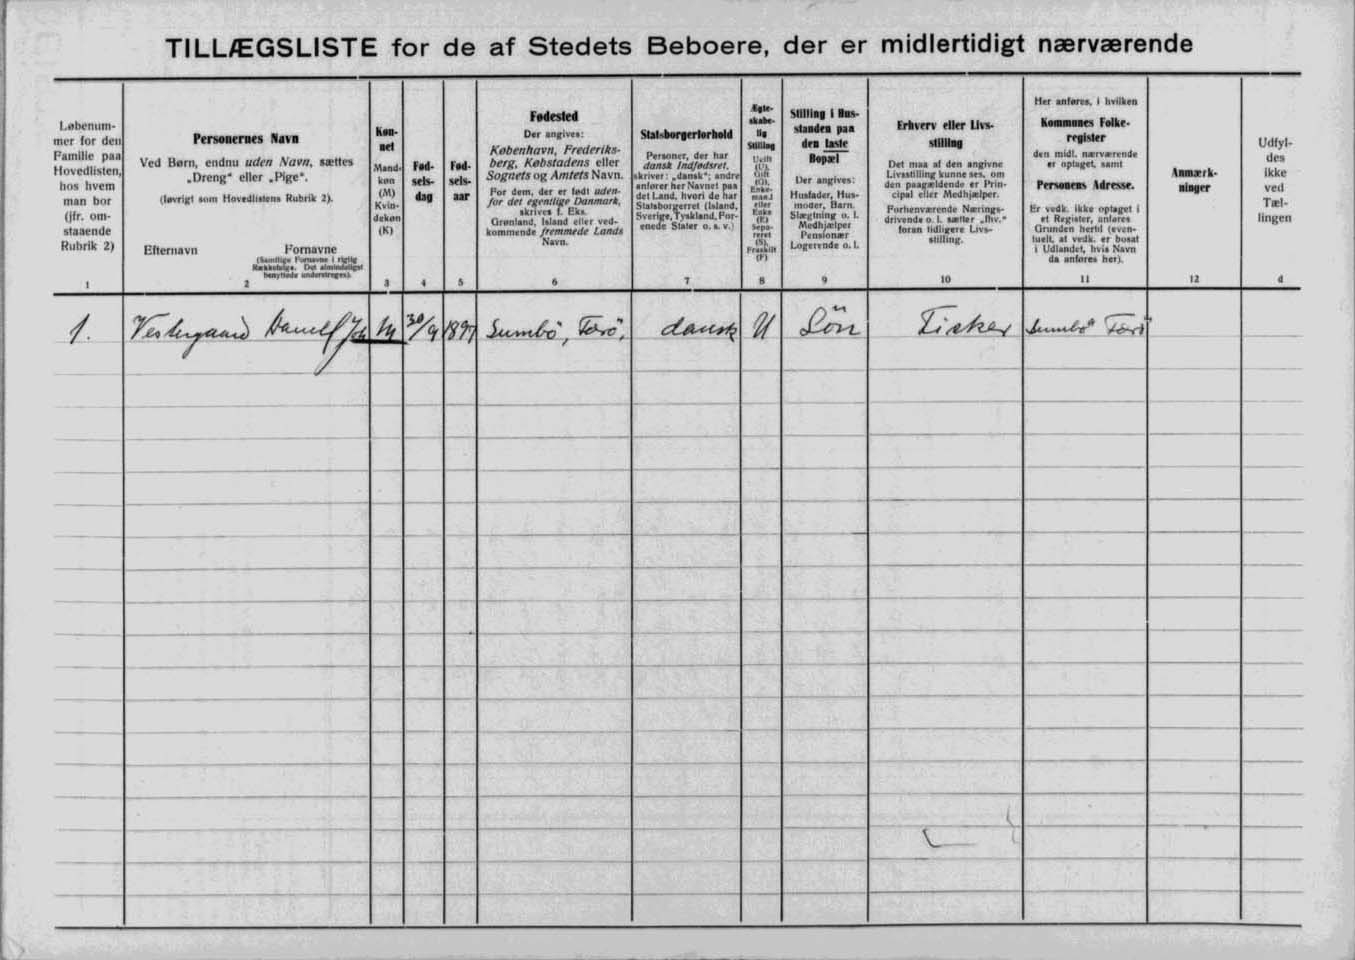 TILLÆGSLISTE for de af Stedets Beboere, der er midlertidigt nærværende
Løbenum-
mer for den
Familie paa
Hovedlisten,
hos hvem
man bor
(jfr. om-
staaende
Rubrik 2)
1
Personernes Navn
Ved Børn, endnu uden Navn, sættes
„Dreng“ eller „Pige“.
(Iøvrigt som Hovedlistens Rubrik 2).
Efternavn
Fornavne
(Samtlige Fornavne i rigtig
Rækkefølge. Det almindeligst
benyttede understreges).
2
Køn-
net
Mand-
køn
(M)
Kvin-
dekøn
(K)
3
Fød-
sels-
dag
4
Fød-
sels-
aar
5
Fødested
Der angives:
København, Frederiks-
berg, Købstadens eller
Sognets og Amtets Navn.
For dem, der er født uden-
for det egentlige Danmark,
skrives f. Eks.
Grønland, Island eller ved-
kommende fremmede Lands
Navn.
6
Statsborgerforhold
Personer, der har
dansk Indfødsret,
skriver: „dansk“; andre
anfører her Navnet paa
det Land, hvori de har
Statsborgerret (Island,
Sverige, Tyskland, For-
enede Stater o. s. v.)
7
Ægte-
skabe-
lig
Stilling
Ugift
(U),
Gift
(G),
Enke-
mand
eller
Enke
(E)
Sepa-
reret
(S),
Fraskilt
(F)
8
Stilling i Hus-
standen paa
den faste
Bopæl
Der angives:
Husfader, Hus-
moder, Barn,
Slægtning o. l.
Medhjælper
Pensionær
Logerende o. l.
9
Erhverv eller Livs-
stilling
Det maa af den angivne
Livsstilling kunne ses, om
den paagældende er Prin-
cipal eller Medhjælper.
Forhenværende Nærings-
drivende o. l. sætter „fhv.“
foran tidligere Livs-
stilling.
10
Her anføres, i hvilken
Kommunes Folke-
register
den midl. nærværende
er optaget, samt
Personens Adresse.
Er vedk. ikke optaget i
et Register, anføres
Grunden hertil (even-
tuelt, at vedk. er bosat
i Udlandet, hvis Navn
da anføres her).
11
Anmærk-
ninger
12
Udfyl-
des
ikke
ved
Tæl-
lingen
d
1. Vestergaard Daniel Joh M 30/9 1897 Sumbö, Færö, dansk U Sön Fisker Sumbö Færö